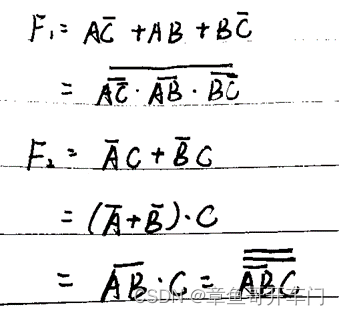 F₁ = AC̅ + AB + BC̅
= \overline{\overline{AC̅} · \overline{AB} · \overline{BC̅}}
F₂ = A̅C + B̅C
= (A̅+B̅)·C
= \overline{AB}·C = \overline{\overline{\overline{AB}C}}
CSDN @章鱼哥开车门